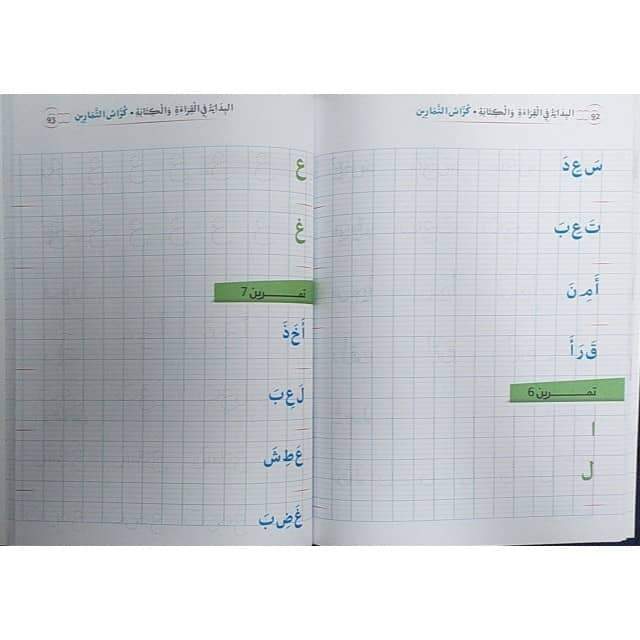 92 البِدَايَةُ فِي الْقِرَاءَةِ وَالْكِتَابَةِ • كُرَّاسُ التَّمَارِين
سَ عِ دَ
تَ عِ بَ
أَ مِ نَ
قَ رَ أَ
تمـــــــرين 6
ا
ل
البِدَايَةُ فِي الْقِرَاءَةِ وَالْكِتَابَةِ • كُرَّاسُ التَّمَارِين 93
ع
غ
تمـــــــرين 7
أَ خَ ذَ
لَ عِ بَ
عَ طِ شَ
غَ ضِ بَ